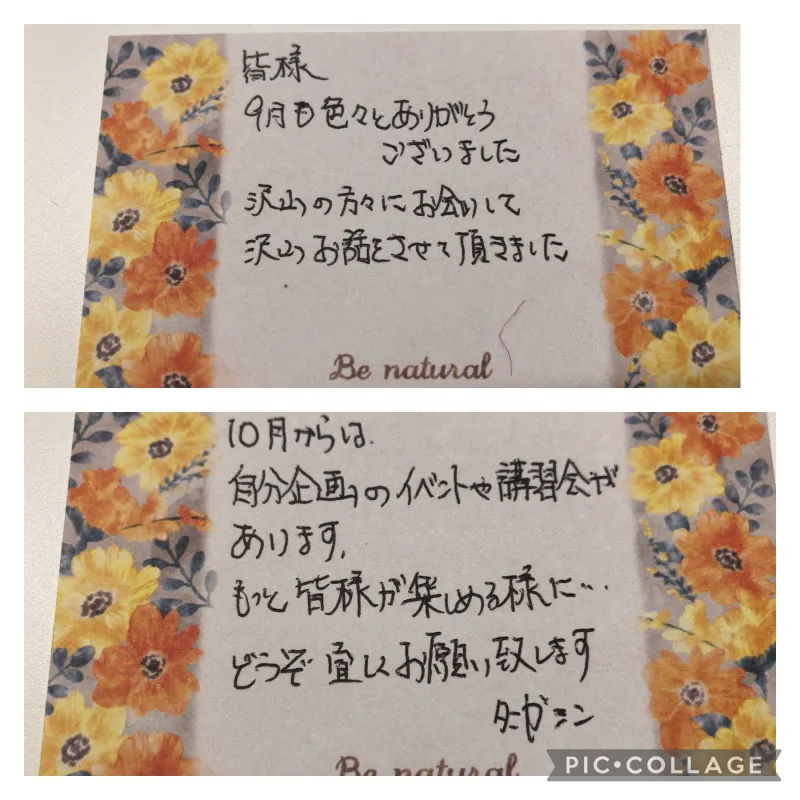 皆様
9月も色々とありがとう
ございました
沢山の方々にお会いして
沢山お話をさせて頂きました
Be natural
10月からは.
自分企画のイベントや講習会が
あります.
もっと皆様が楽しめる様に…
どうぞ宜しくお願い致します
Be natural
PIC•COLLAGE